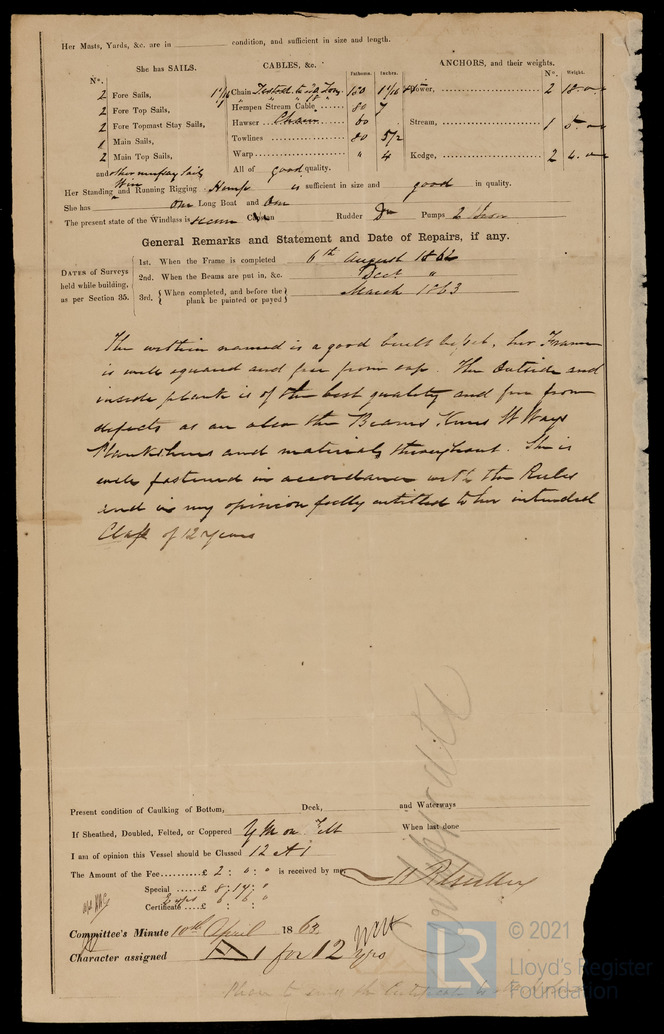 Her Masts, Yards, &c. are in condition, and sufficient in size and length.
She has SAILS.
CABLES, &c.
Fathoms.
Inches.
ANCHORS, and their weights.
N°.
Weight.
N°.
2 Fore Sails,
2 Fore Top Sails,
2 Fore Topmast Stay Sails,
1 Main Sails,
2 Main Top Sails,
and other necessary Sails
Chain Tested to Tons 150 1 4/16
Hempen Stream Cable 80 7
Hawser Chain 60
Towlines 80 5/2
Warp " 4
All of good quality.
Bower, 2 18.0.0
Stream, 1 5.0.0
Kedge, 2 4.0.0
Her Standing Wire and Running Rigging Hemp is sufficient in size and good in quality.
She has one Long Boat and One
The present state of the Windlass is new Capstan Rudder Do Pumps 2 Iron
General Remarks and Statement and Date of Repairs, if any.
DATES of Surveys held while building, as per Section 35.
1st. When the Frame is completed 6th August 1862
2nd. When the Beams are put in, &c. Dect "
3rd. { When completed, and before the plank be painted or payed } March 1863
The within named is a good built vessel, her Frame
is well squared and free from sap. The Outside and
inside plank is of the best quality and free from
defects as are also the Beams, Knees W Ways
Planksheers and materials throughout. She is
well fastened in accordance with the Rules
and in my opinion fully entitled to her intended
Class of 12 years
Present condition of Caulking of Bottom, Deck, and Waterways
If Sheathed, Doubled, Felted, or Coppered Y M on Felt When last done
I am of opinion this Vessel should be Classed 12 A 1
The Amount of the Fee £ 2 : 0 : 0 is received by me,
Special £ 8 : 14 : "
Certificate £ : 6 : "
Committee's Minute 10th April 1863
Character assigned A 1 for 12 yrs
© 2021
LR
Lloyd's Register
Foundation